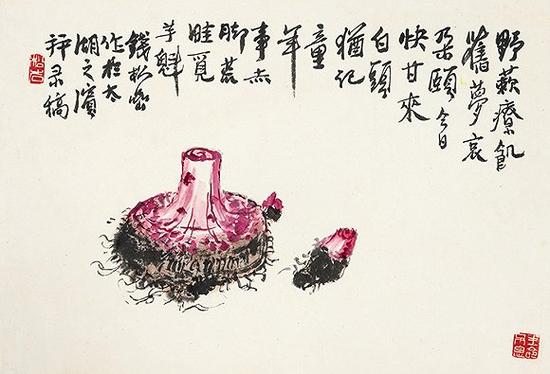 野蔌療飢
舊夢哀
朶頤今日
快甘來
白頭
猶記
童
年
事赤
脚荒
畦覓
芋魁
錢松嵒
作於太
湖之濱
并录稿